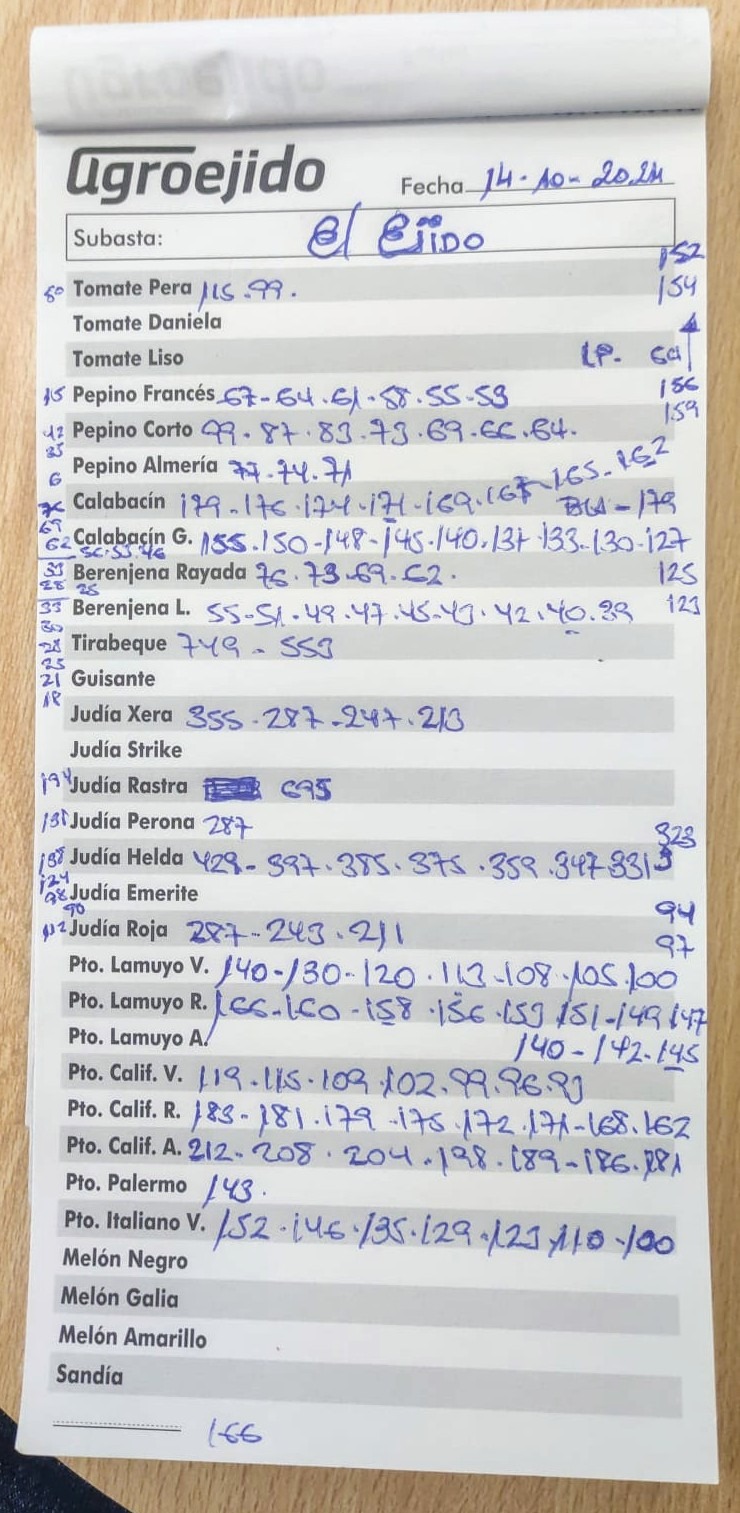 agroejido
Fecha 14-10-2024
Subasta: El EjiDO
152
80 Tomate Pera 115.99. 154
Tomate Daniela
Tomate Liso LP.
15 Pepino Francés 67-64.61-58.55-53 156
159
42 Pepino Corto 99.87.83.73.69.66.64.
35
6 Pepino Almería 77.74.71
Calabacín 179-176.174.171-169.167-165-162
179
69
62 Calabacín G. 155.150-148-145.140.137.133.130.127
56.53.46
33 Berenjena Rayada 76.73.69.62. 125
28 25
33 Berenjena L. 55-51.49.47.45-43.42.40.39 123
30
28 Tirabeque 749-553
25
21 Guisante
18
Judía Xera 355.287-247.213
Judía Strike
194 Judía Rastra 695
181 Judía Perona 287
323
138 Judía Helda 429-397.385.375.359.347.331
124
98 Judía Emerite
90
94
112 Judía Roja 287-243.211
97
Pto. Lamuyo V. 140-130-120.113-108.105.100
Pto. Lamuyo R. 166-160-158.156.153.151-149.147
Pto. Lamuyo A. 140-142.145
Pto. Calif. V. 119.115.109.102.99.96.93
Pto. Calif. R. 183-181.179-175.172.171-168.162
Pto. Calif. A. 212-208.204.198.189-186.181
Pto. Palermo 143.
Pto. Italiano V. 152.146.135.129.123.110.100
Melón Negro
Melón Galia
Melón Amarillo
Sandía
166